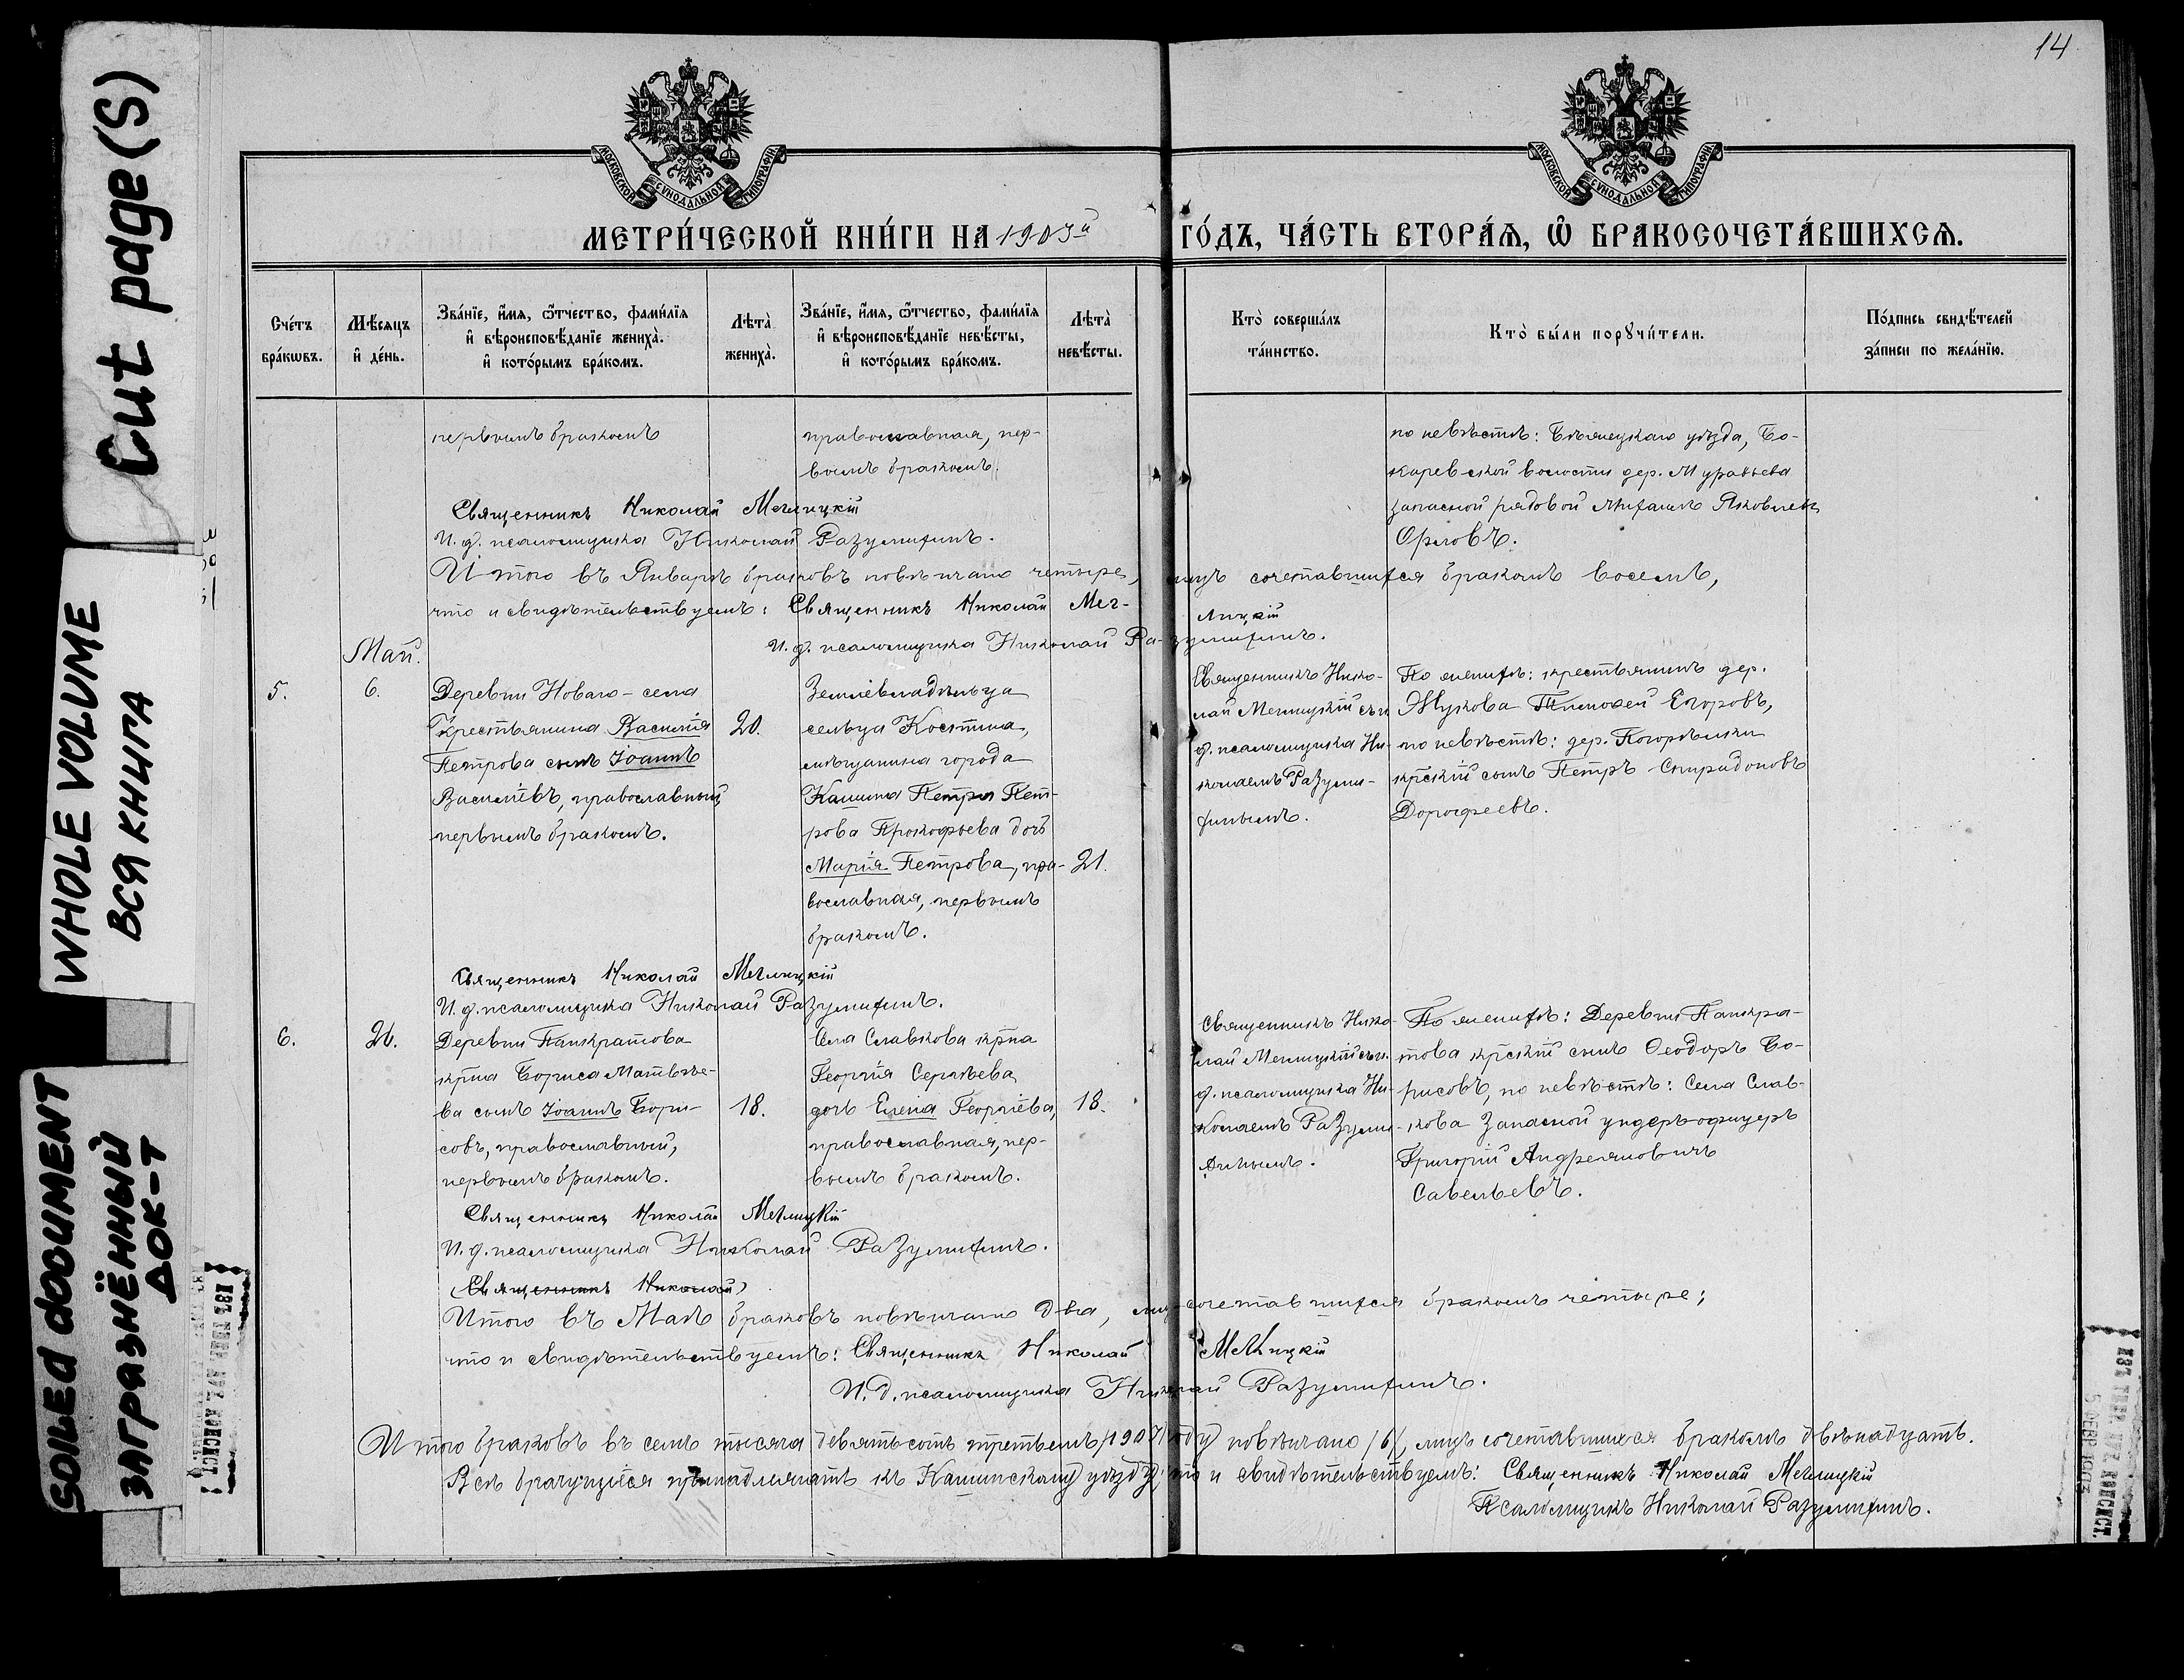 14
Cut page(s)
WHOLE VOLUME
ВСЯ КНИГА
SOILEd dOCUMENT
ЗАГРЯЗНЁННЫЙ
ДОК-Т
МОСКОВСКОЙ СѴНОДАЛЬНОЙ ТИПОГРАФІИ
МОСКОВСКОЙ СѴНОДАЛЬНОЙ ТИПОГРАФІИ
МЕТРИ́ЧЕСКОЙ КНИ́ГИ НА 1903й ГО́ДЪ, ЧА́СТЬ ВТОРА́Ѧ, Ѡ҆ БРАКОСОЧЕТА́ВШИХСѦ.
Сче́тъ
бра́кѡвъ.
Мѣ́сяцъ
и҆ де́нь.
Зва́нїе, и҆́мя, ѻ҆́тчество, фами́лїя
и҆ вѣроисповѣ́данїе жениха̀.
и҆ кото́рымъ бра́комъ.
Лѣта̀
жениха̀.
Зва́нїе, и҆́мя, ѻ҆́тчество, фами́лїя
и҆ вѣроисповѣ́данїе невѣ́сты,
и҆ кото́рымъ бра́комъ.
Лѣта̀
невѣ́сты.
Кто̀ соверша́лъ
та́инство.
Кто̀ бы́ли порꙋчи́тели.
По́дпись свидѣ́телей
за́писи по жела́нїю.
первымъ бракомъ
православная, пер-
вымъ бракомъ.
по невѣстѣ: Бѣжецкаго уѣзда, Бо-
каревской волости дер. Муравьева
запасной рядовой Михаилъ Яковлевъ
Орловъ.
Священникъ Николай Меглицкій
И. д. псаломщика Николай Разумихинъ.
Итого въ Январѣ браковъ повѣнчано четыре, лицъ сочетавшихся бракомъ восемь,
что и свидѣтельствуемъ: Священникъ Николай Мег-
лицкій
И. д. псаломщика Николай Разумихинъ.
Май.
5.
6.
Деревни Новаго-села
Крестьянина Василія
Петрова сынъ Іоаннъ
Василіевъ, православный
первымъ бракомъ.
20.
Землевладѣльца
сельца Костина,
мѣщанина города
Кашина Петра Пет-
рова Прокофьева дочь
Марія Петрова, пра-
вославная, первымъ
бракомъ.
21.
Священникъ Нико-
лай Меглицкій съ и.
д. псаломщика Ни-
колаемъ Разуми-
хинымъ.
По женихѣ: крестьянинъ дер.
Жукова Тимофей Егоровъ,
по невѣстѣ: дер. Погорѣлки
крѣскій сынъ Петръ Спиридоновъ
Дорофеевъ.
Священникъ Николай Меглицкій
И. д. псаломщика Николай Разумихинъ.
6.
26.
Деревни Панкратова
крѣна Бориса Матвѣе-
ва сынъ Іоаннъ Бори-
совъ, православный,
первымъ бракомъ.
18.
Села Славкова крѣна
Георгія Сергѣева
дочь Елена Георгіева,
православная, пер-
вымъ бракомъ.
18.
Священникъ Нико-
лай Меглицкій съ и.
д. псаломщика Ни-
колаемъ Разуми-
хинымъ.
По женихѣ: Деревни Панкра-
това крѣскій сынъ Ѳеодоръ Бо-
рисовъ, по невѣстѣ: Села Слав-
кова запасной ундеръ-офицеръ
Григорій Андреяновичъ
Савельевъ.
Священникъ Николай Меглицкій
И. д. псаломщика Николай Разумихинъ.
(Священникъ Николай)
Итого въ Маѣ браковъ повѣнчано два, лицъ сочетавшихся бракомъ четыре;
что и свидѣтельствуемъ: Священникъ Николай Меглицкій
И. д. псаломщика Николай Разумихинъ.
Итого браковъ въ семъ тысяча девятьсотъ третьемъ /1903/ году повѣнчано /6/, лицъ сочетавшихся бракомъ двѣнадцать.
Всѣ брачущіеся принадлежатъ къ Кашинскому уѣзду, что и свидѣтельствуемъ: Священникъ Николай Меглицкій
Псаломщикъ Николай Разумихинъ.